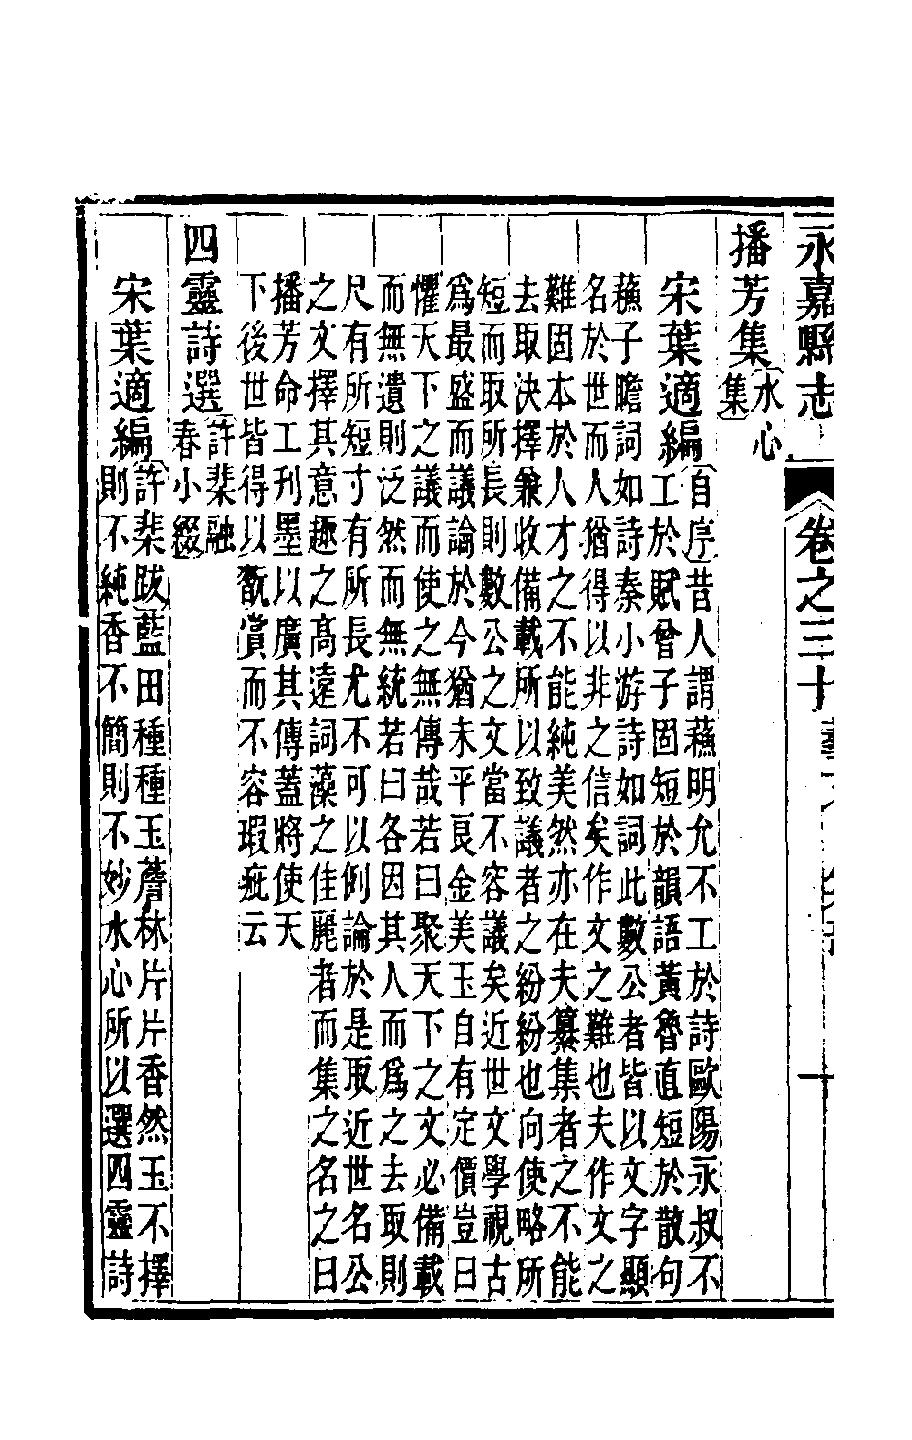 永嘉縣志 卷之三十 十
播芳集 水心
集
宋葉適編 自序昔人謂蘇明允不工於詩歐陽永叔不
工於賦曾子固短於韻語黃魯直短於散句
蘇子瞻詞如詩秦小游詩如詞此數公者皆以文字顯
名於世而人猶得以非之信矣作文之難也夫作文之
難固本於人才之不能純美然亦在夫纂集者之不能
去取決擇兼收備載所以致議者之紛紛也向使略所
短而取所長則數公之文當不容議矣近世文學視古
爲最盛而議論於今猶未平良金美玉自有定價豈曰
懼天下之議而使之無傳哉若曰聚天下之文必備載
而無遺則泛然而無統若曰各因其人而爲之去取則
尺有所短寸有所長尤不可以例論於是取近世名公
之文擇其意趣之高遠詞藻之佳麗者而集之名之曰
播芳命工刊墨以廣其傳蓋將使天
下後世皆得以翫賞而不容瑕疵云
四靈詩選 許棐融
春小綴
宋葉適編 許棐跋藍田種種玉薝林片片香然玉不擇
則不純香不簡則不妙水心所以選四靈詩